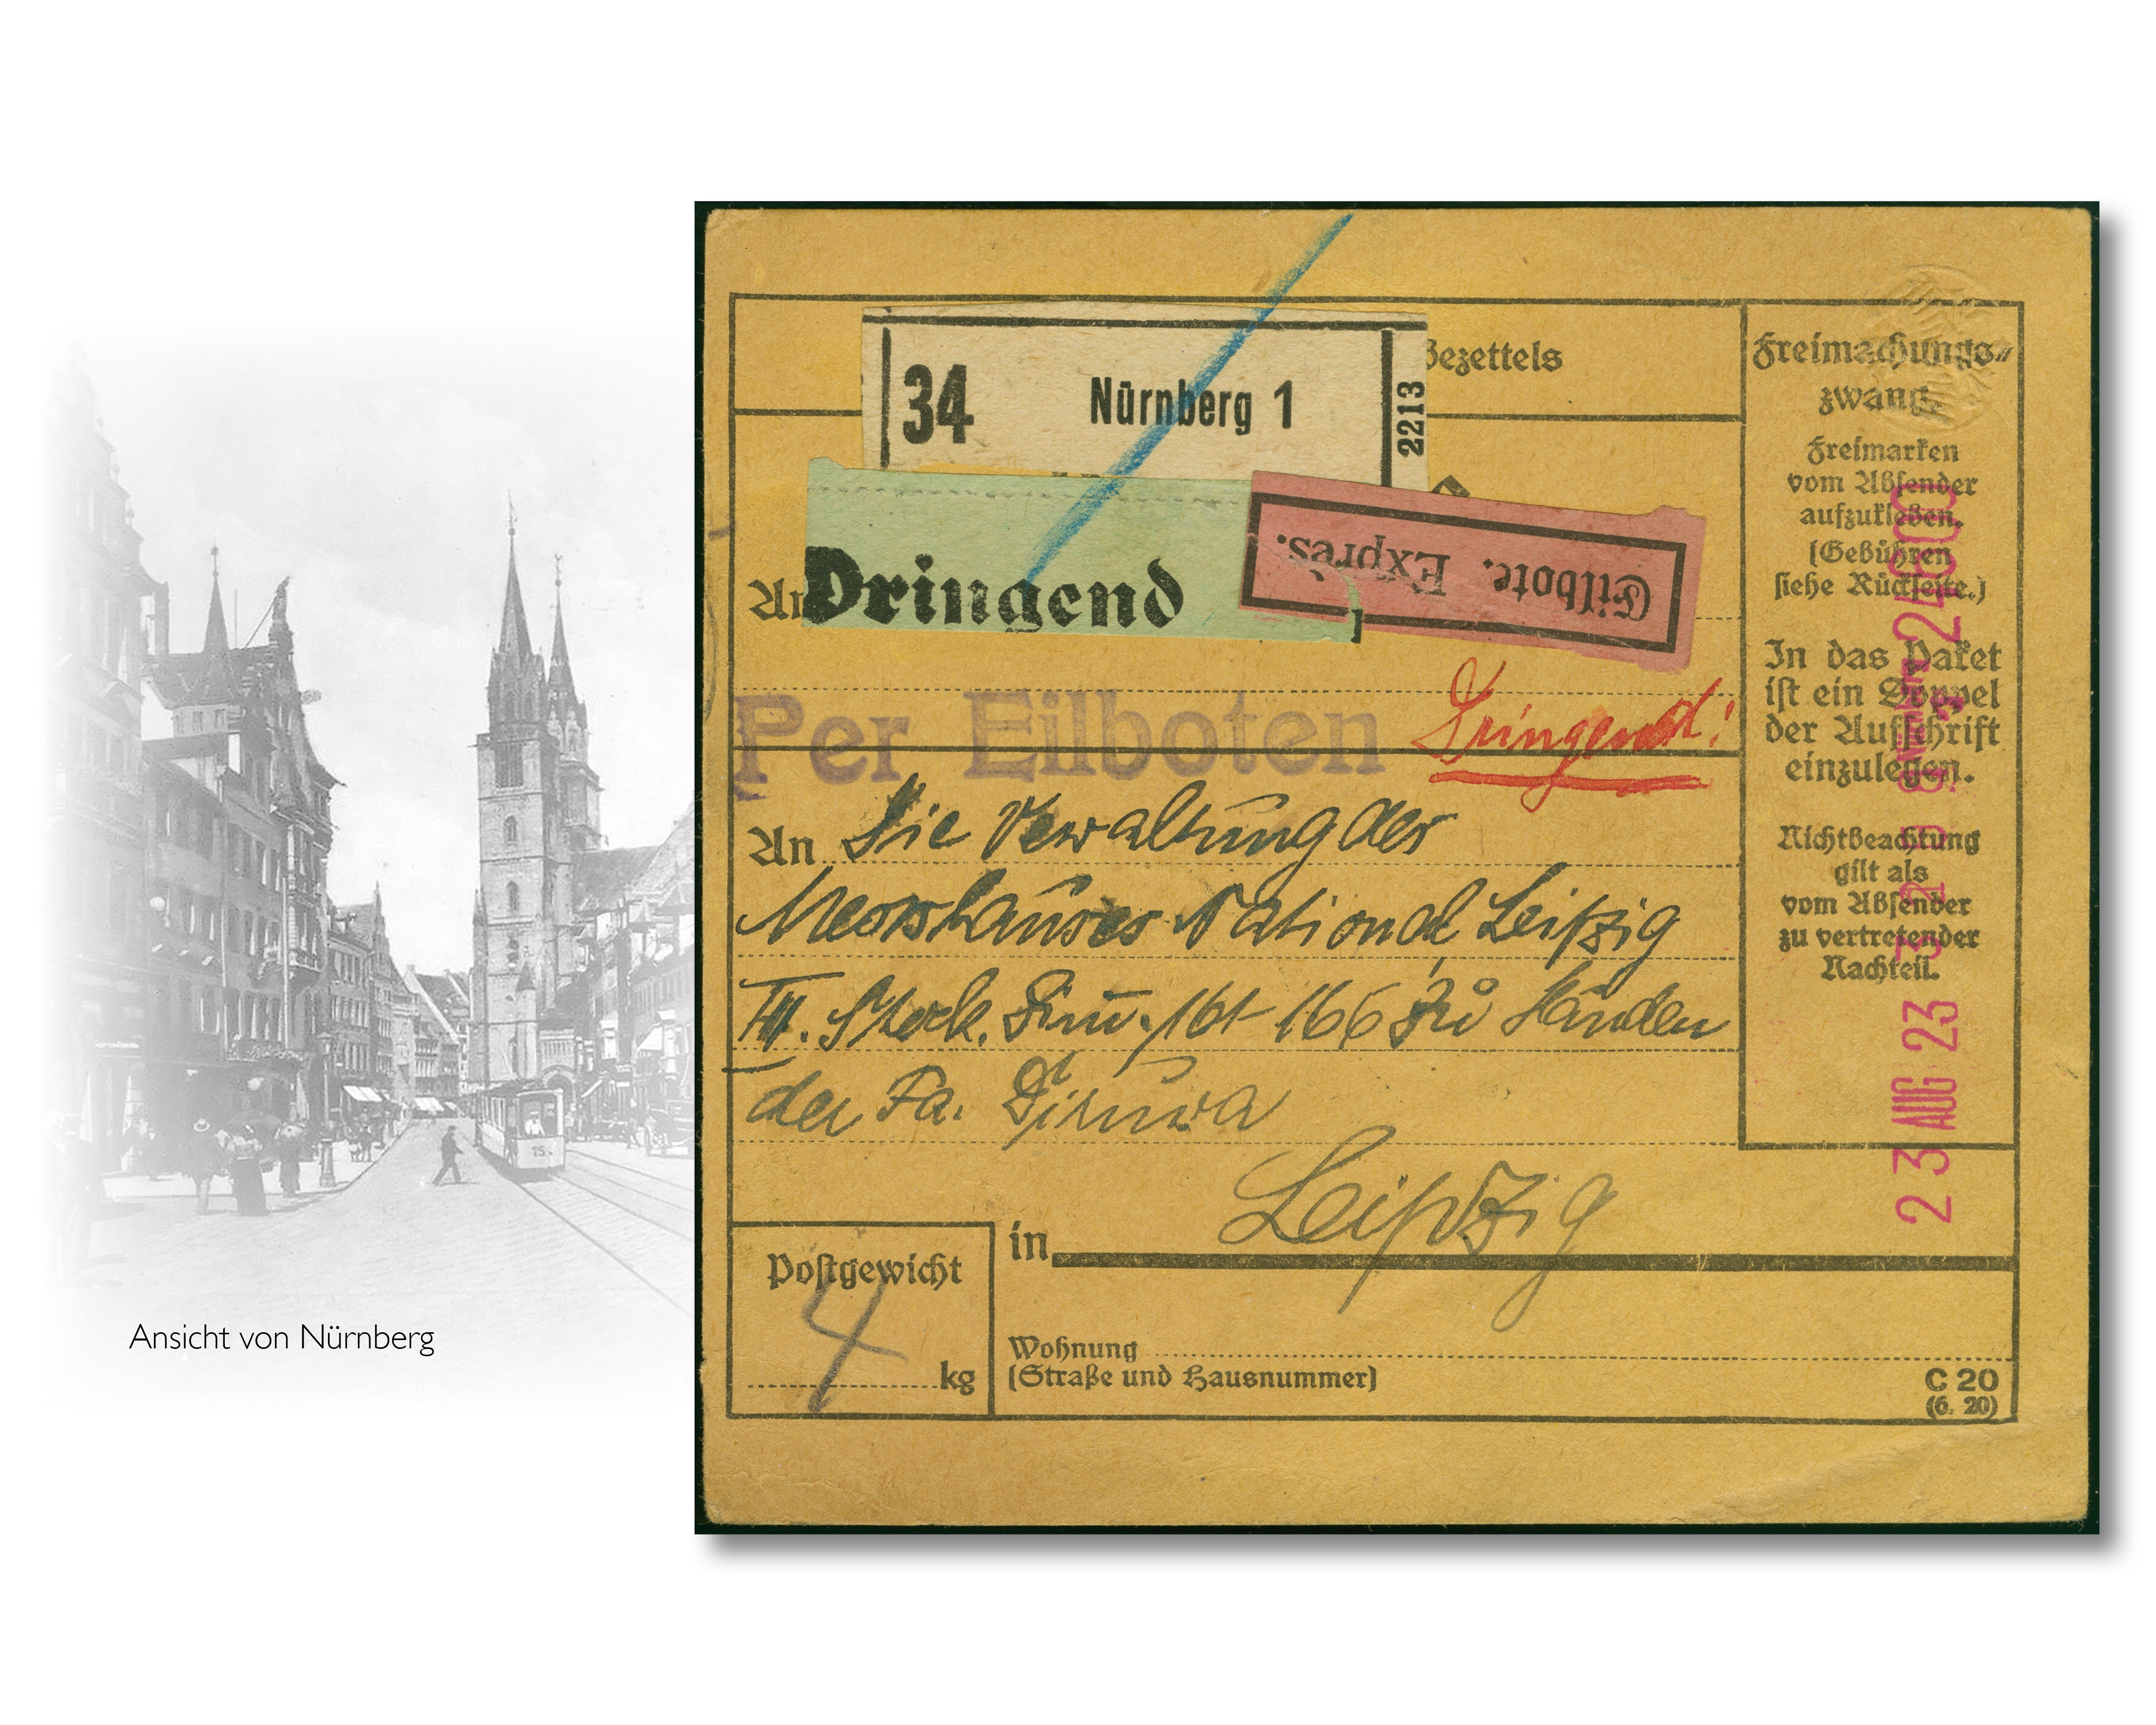 Ansicht von Nürnberg
Bezettels
34 Nürnberg 1 2213
Dringend
Eilbote. Exprès.
An
Per Eilboten
Dringend!
An Die Verwaltung des
Messhauses National Leipzig
III. Stock. Zim. 161-166 Zu Händen
der Fa.
in Leipzig
Postgewicht
4 kg
Wohnung
(Straße und Hausnummer)
C 20
(6. 20)
Freimachungs-
zwang.
Freimarken
vom Absender
aufzukleben.
(Gebühren
siehe Rückseite.)
In das Paket
ist ein Doppel
der Aufschrift
einzulegen.
Nichtbeachtung
gilt als
vom Absender
zu vertretender
Nachteil.
23 AUG 23